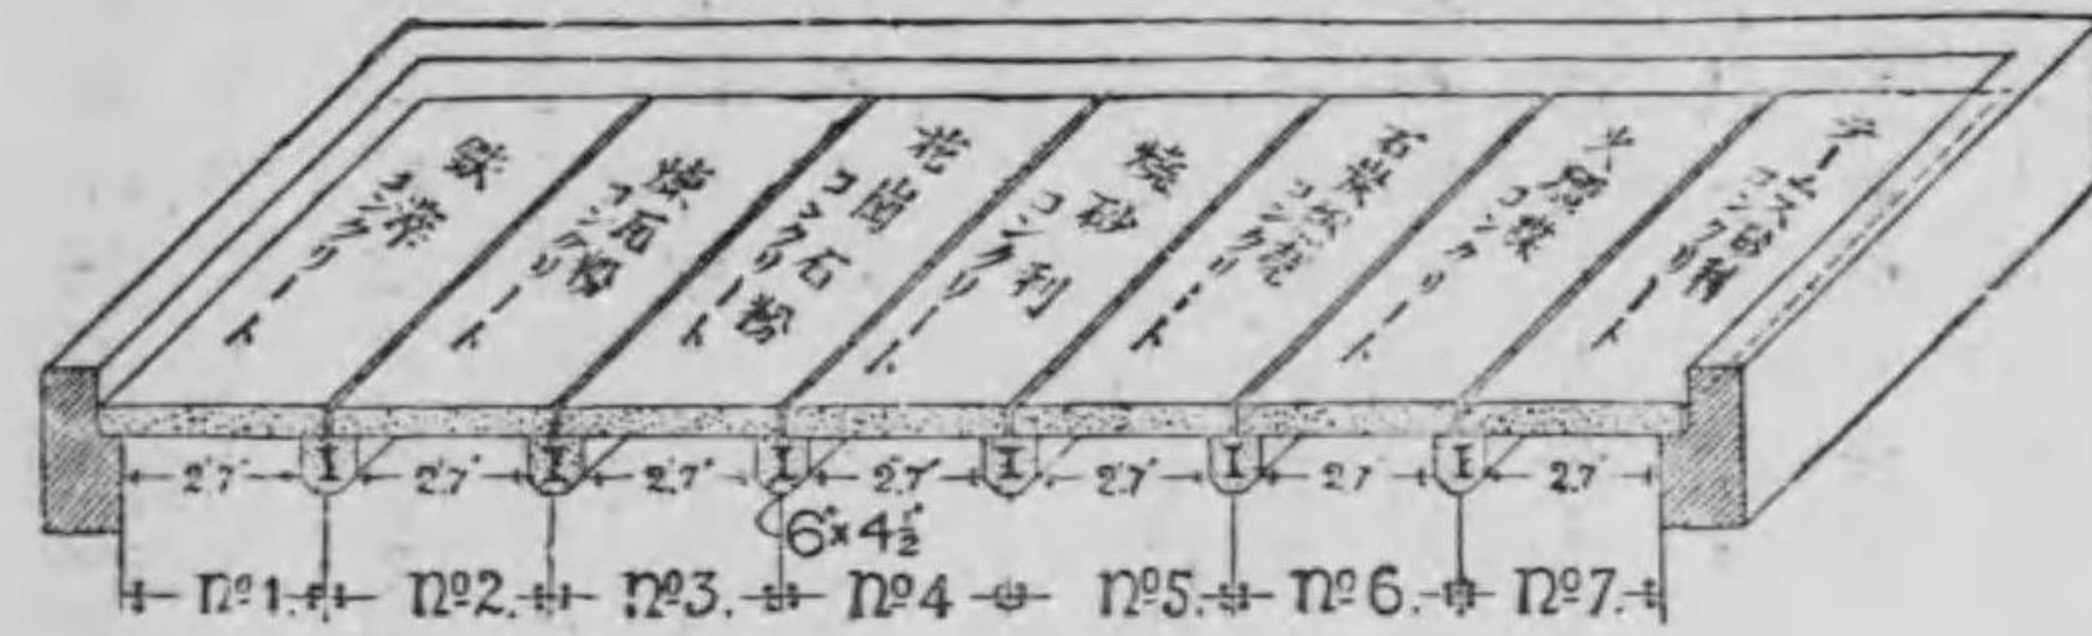 鉄滓
コンクリート
煉瓦粉
コンクリート
花崗石粉
コンクリート
焼砂利
コンクリート
石炭燃焼
コンクリート
火爐炭
コンクリート
テームス砂利
コンクリート
2'7" 2'7" 2'7" 2'7" 2'7" 2'7" 2'7"
6"×4½"
Nº1. Nº2. Nº3. Nº4 Nº5. Nº6. Nº7.